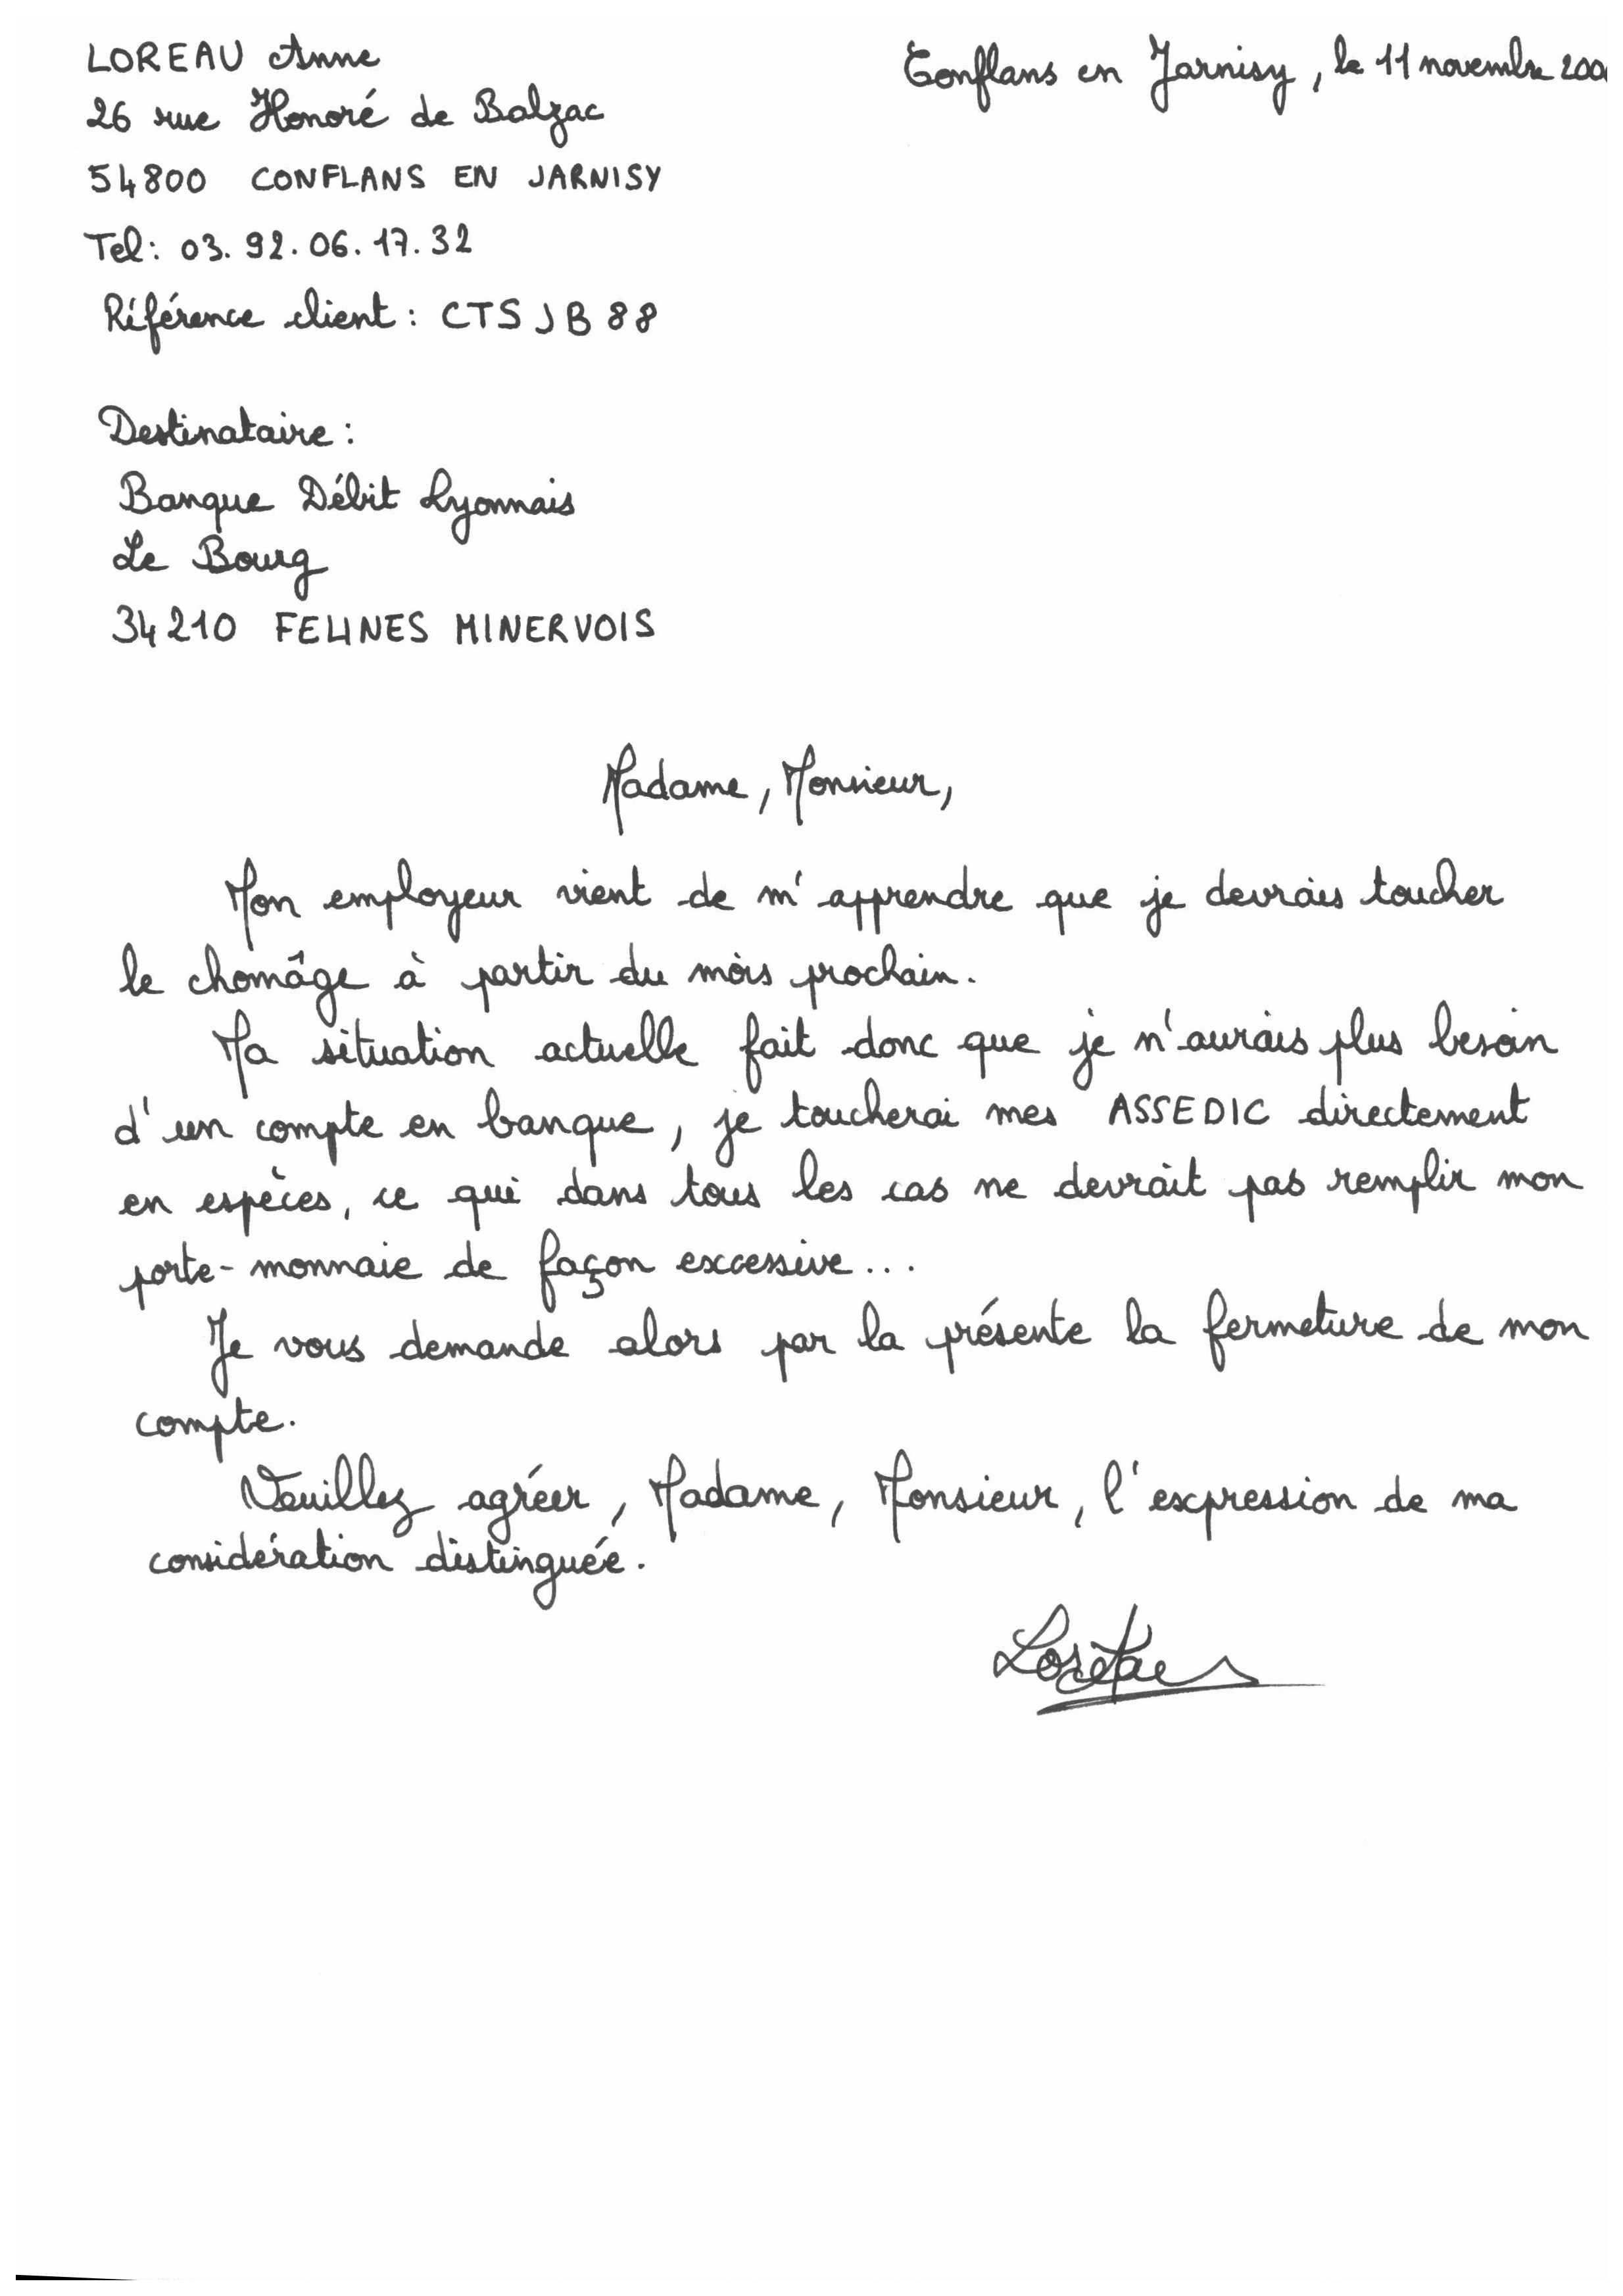 LOREAU Anne
Conflans en Jarnisy, le 11 novembre
26 rue Honoré de Balzac
54800 CONFLANS EN JARNISY
Tel: 03.92.06.17.32
Référence client : CTSJB88
Destinataire :
Banque Débit Lyonnais
Le Bourg
34210 FELINES MINERVOIS
Madame, Monsieur,
Mon employeur vient de m'apprendre que je devrais toucher
le chomâge à partir du mois prochain.
Ma situation actuelle fait donc que je n'aurais plus besoin
d'un compte en banque, je toucherai mes ASSEDIC directement
en espèces, ce qui dans tous les cas ne devrait pas remplir mon
porte-monnaie de façon excessive...
Je vous demande alors par la présente la fermeture de mon
compte.
Veuillez agréer, Madame, Monsieur, l'expression de ma
considération distinguée.